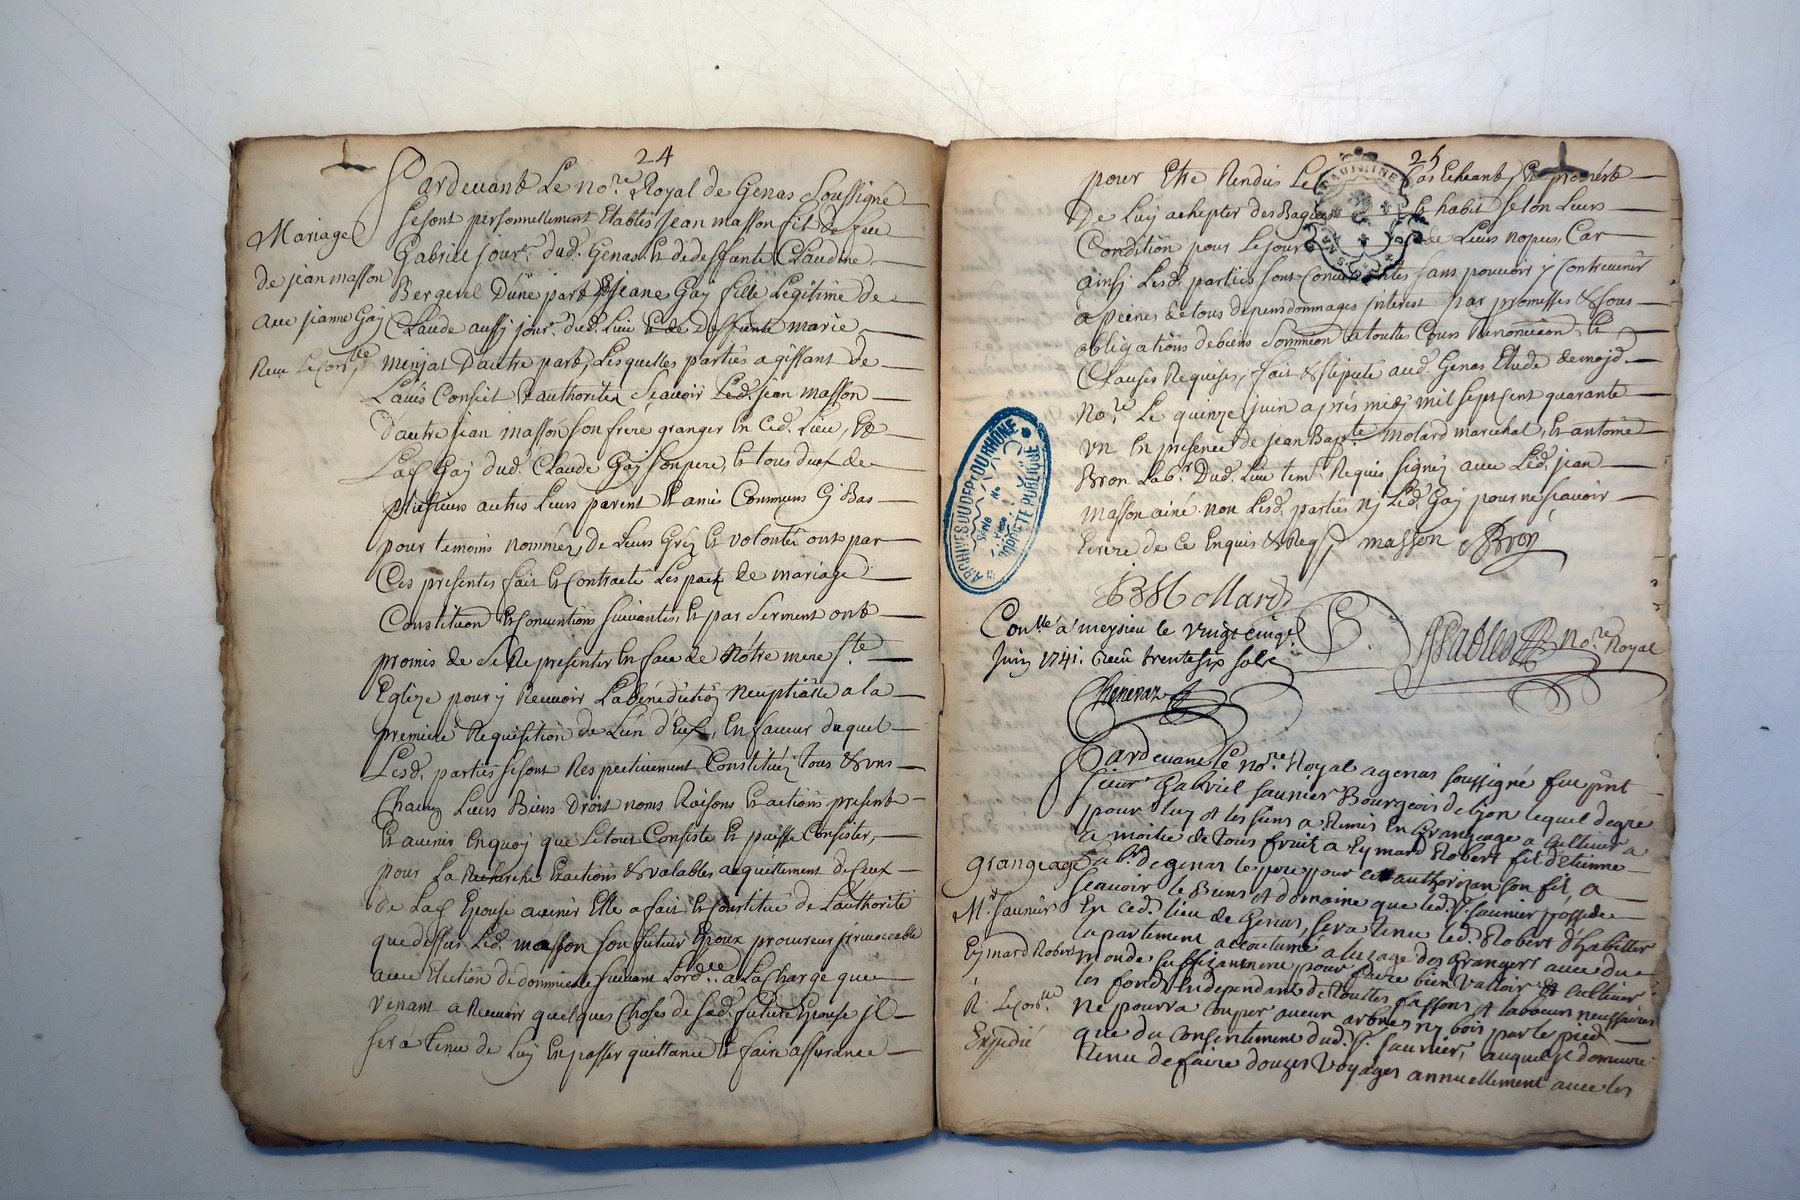 24
Pardevant Le no.re Royal de Genas Soussigné
se sont personnellement Etablis Jean masson fils de feu
Gabriel jour.r dud. Genas & de deffunte Claudine
Bergeul D'une part & jeane Gay fille Legitime de
Claude aussy jour.r dud. Lieu & de Deffunte marie
minjat D'autre part, Lesquelles parties agissant de
L'avis Conseil & authorité Sçavoir Led. jean masson
d'autre jean masson son frere granger En Ced. Lieu, &
Lad. Gay dud. Claude Gay son pere, & tous deux de
plusieurs autres Leurs parent & amis Communs Cy Bas
pour temoins nommés, de Leurs Gréz & volonté ont par
Ces presentes fait & Contracté Les pact de mariage
Constitution & Conventions suivantes & par serment ont
promis de se Representer En face de Nôtre mere S.te
Eglize pour y Recevoir La benediction Neuptialle a la
premiere Requisition de L'un d'Eux, En faveur duquel
Lesd. parties se sont Respectivement Constitué Tous & uns
Chacuns Leurs Biens Droit noms Raisons & actions present
& avenir En quoy que Le tout Consiste & puisse Consister,
pour La Recherche Exactions & valables acquittement de Ceux
de Lad. Epouse avenir Elle a fait & Constitué de L'authorité
que dessus Led. masson son futeur Epoux procureur jrrevocable
avec Election de domicile suivant L'ord.ce a La Charge que
venant a Recevoir quelques Choses de sad. future Epouse jl
sera tenu de Luy En passer quittance & faire assurance
Mariage
de jean masson
avec jeanne Gay
25
pour Etre Rendus Le Cas Echeant, &
De Luy achepter des Bagues & habit selon Leurs
Condition pour Le jour de Leurs nopces, Car
ainsy Lesd. parties sont Convenantes sans pouvoir y Contrevenir
a peines de tous depens dommages jnterest par promesses & sous
obligations de biens soumission a touttes Cours Renonciation &
Clauses Requises, fait & stipulé aud. Genas Etude de moyd.
No.re Le quinze juin aprés midy mil sept Cent quarante
un En presence de jean Bap.te Molard marechal, & antoine
Bron Lab.r Dud. Lieu tem. Requis signés avec Led. jean
masson ainé non Lesd. parties Ny Led. Gay pour ne sçavoir
Ecrire de Ce Enquis & Req. masson Bron
JB Mollard
Con.llé a meysieu le vingt cinq.
Juin 1741. Receu trente six sols
no.re Royal
ARCHIVES DU DEPT DU RHÔNE
PROPRIETE PUBLIQUE
Pardevant le no.re Royal a genas soussigné fut pñt
sieur Gabriel Saunier Bourgeois de Lyon lequel degre
pour luy et les siens a Remis En Grangeage a Cultiver a
a moitié de tous fruit a Eymard Robert fils d'Etienne
Lab.r de genas le pere pour Ce authorizan son fils, a
sçavoir le Biens et domaine que led. S.r Saunier possede
En Ced. lieu de Genas, sera tenu led. Robert d'habitter
monde suffizamment pour faire bien valloir & cultiver
les fonds Independant de touttes fassons et labeurs neussaires
Ne pourra Couper aucun arbres ny bois par le pied
que du Consentement dud. S.r Saunier, auquel jl demeure
tenu de faire douzes Voyages annuellement avec les
Grangeage
M.r Saunier
Eymard Robert
Expedié